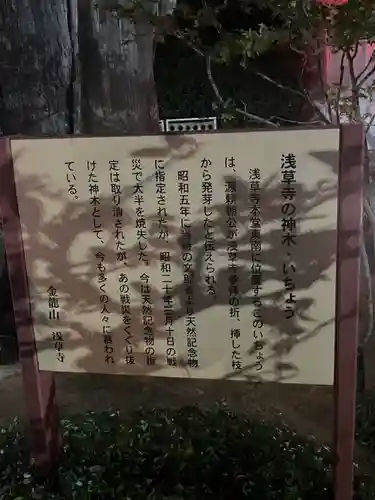 浅草寺の神木・いちょう
浅草寺本堂東南に位置するこのいちょう
は、源頼朝公が浅草寺参拝の折、挿した枝
から発芽したと伝えられる。
昭和五年に時の文部省より天然記念物
に指定されたが、昭和二十年三月十日の戦
災で大半を焼失した。今は天然記念物の指
定は取り消されたが、あの戦災をくぐり抜
けた神木として、今も多くの人々に慕われ
ている。
金龍山 浅草寺